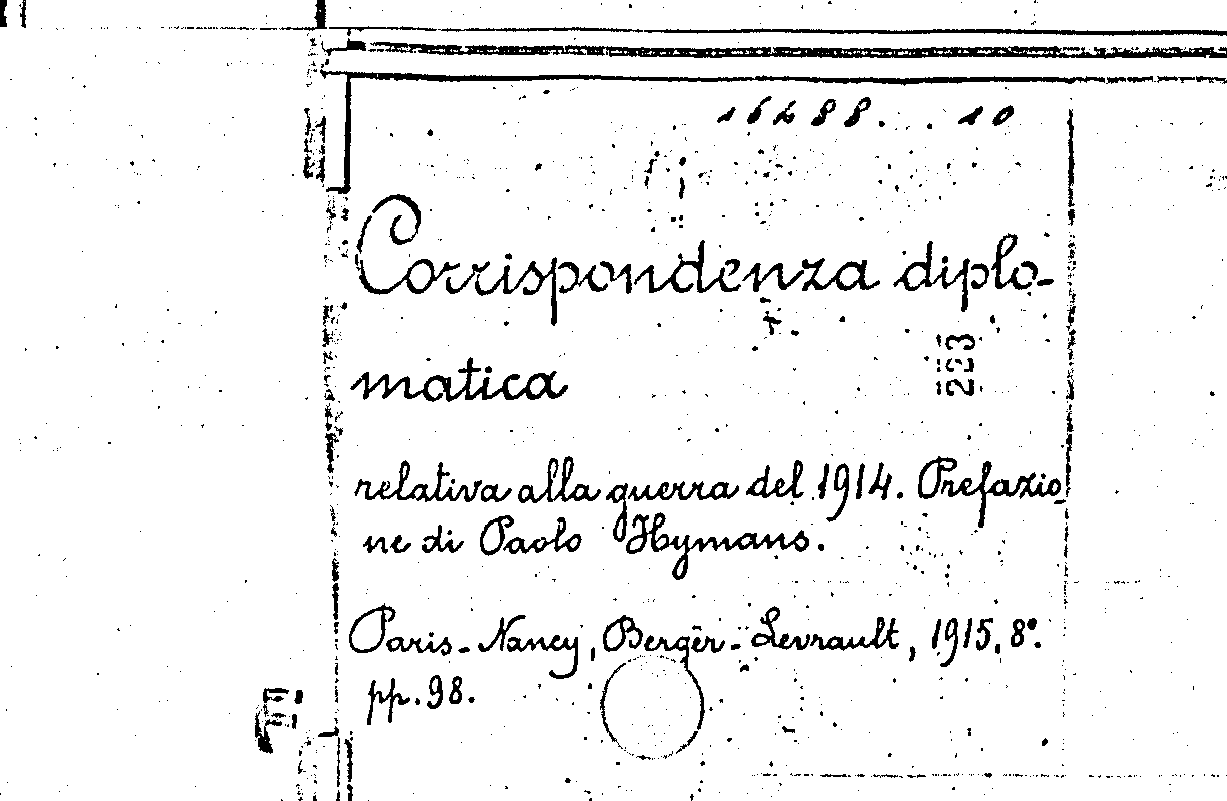 16288. . 10
Corrispondenza diplo-
matica
223
relativa alla guerra del 1914. Prefazio-
ne di Paolo Hymans.
Paris-Nancy, Berger-Levrault, 1915, 8°.
pp. 98.